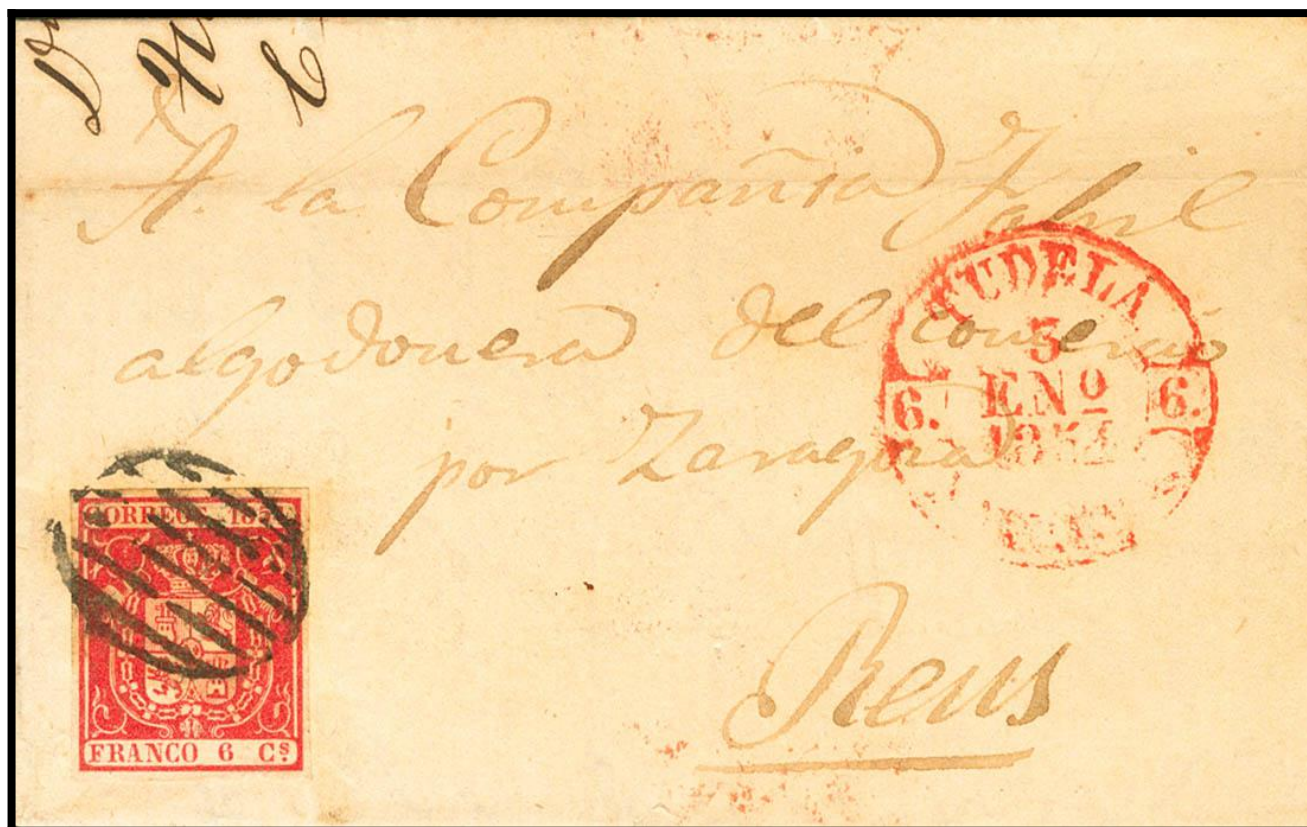 A. la Compañia Fabril
algodonera del comercio
por Zaragoza
Reus
TUDELA
5
ENº
1854
6. 6.
CORREOS 1854
FRANCO 6 Cs.